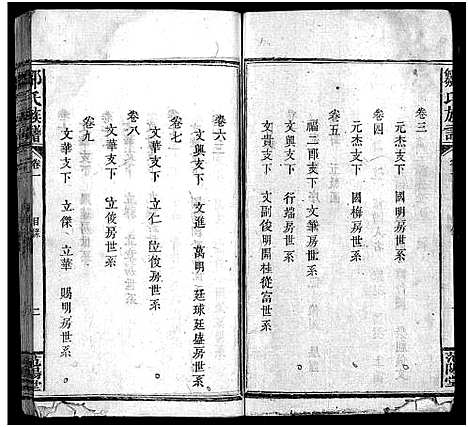 鄒氏族譜
卷三
元杰支下 國明房世系
卷四
元杰支下 國梅房世系
卷五
福二郎支下 文華房世系
文興支下 行端房世系
文貴支下 文副俊明開桂從富世系
卷六
文興支下 文進 萬明 廷球廷盛房世系
卷七
文華支下 立仁 位俊房世系
卷八
文華支下 立俊房世系
卷九
文華支下 立傑 立華 賜明房世系
鄒氏族譜
卷一
目錄
上
范陽堂